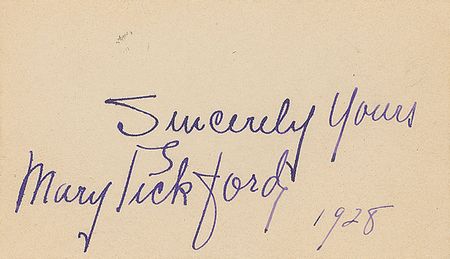 Sincerely Yours
Mary Pickford
1928